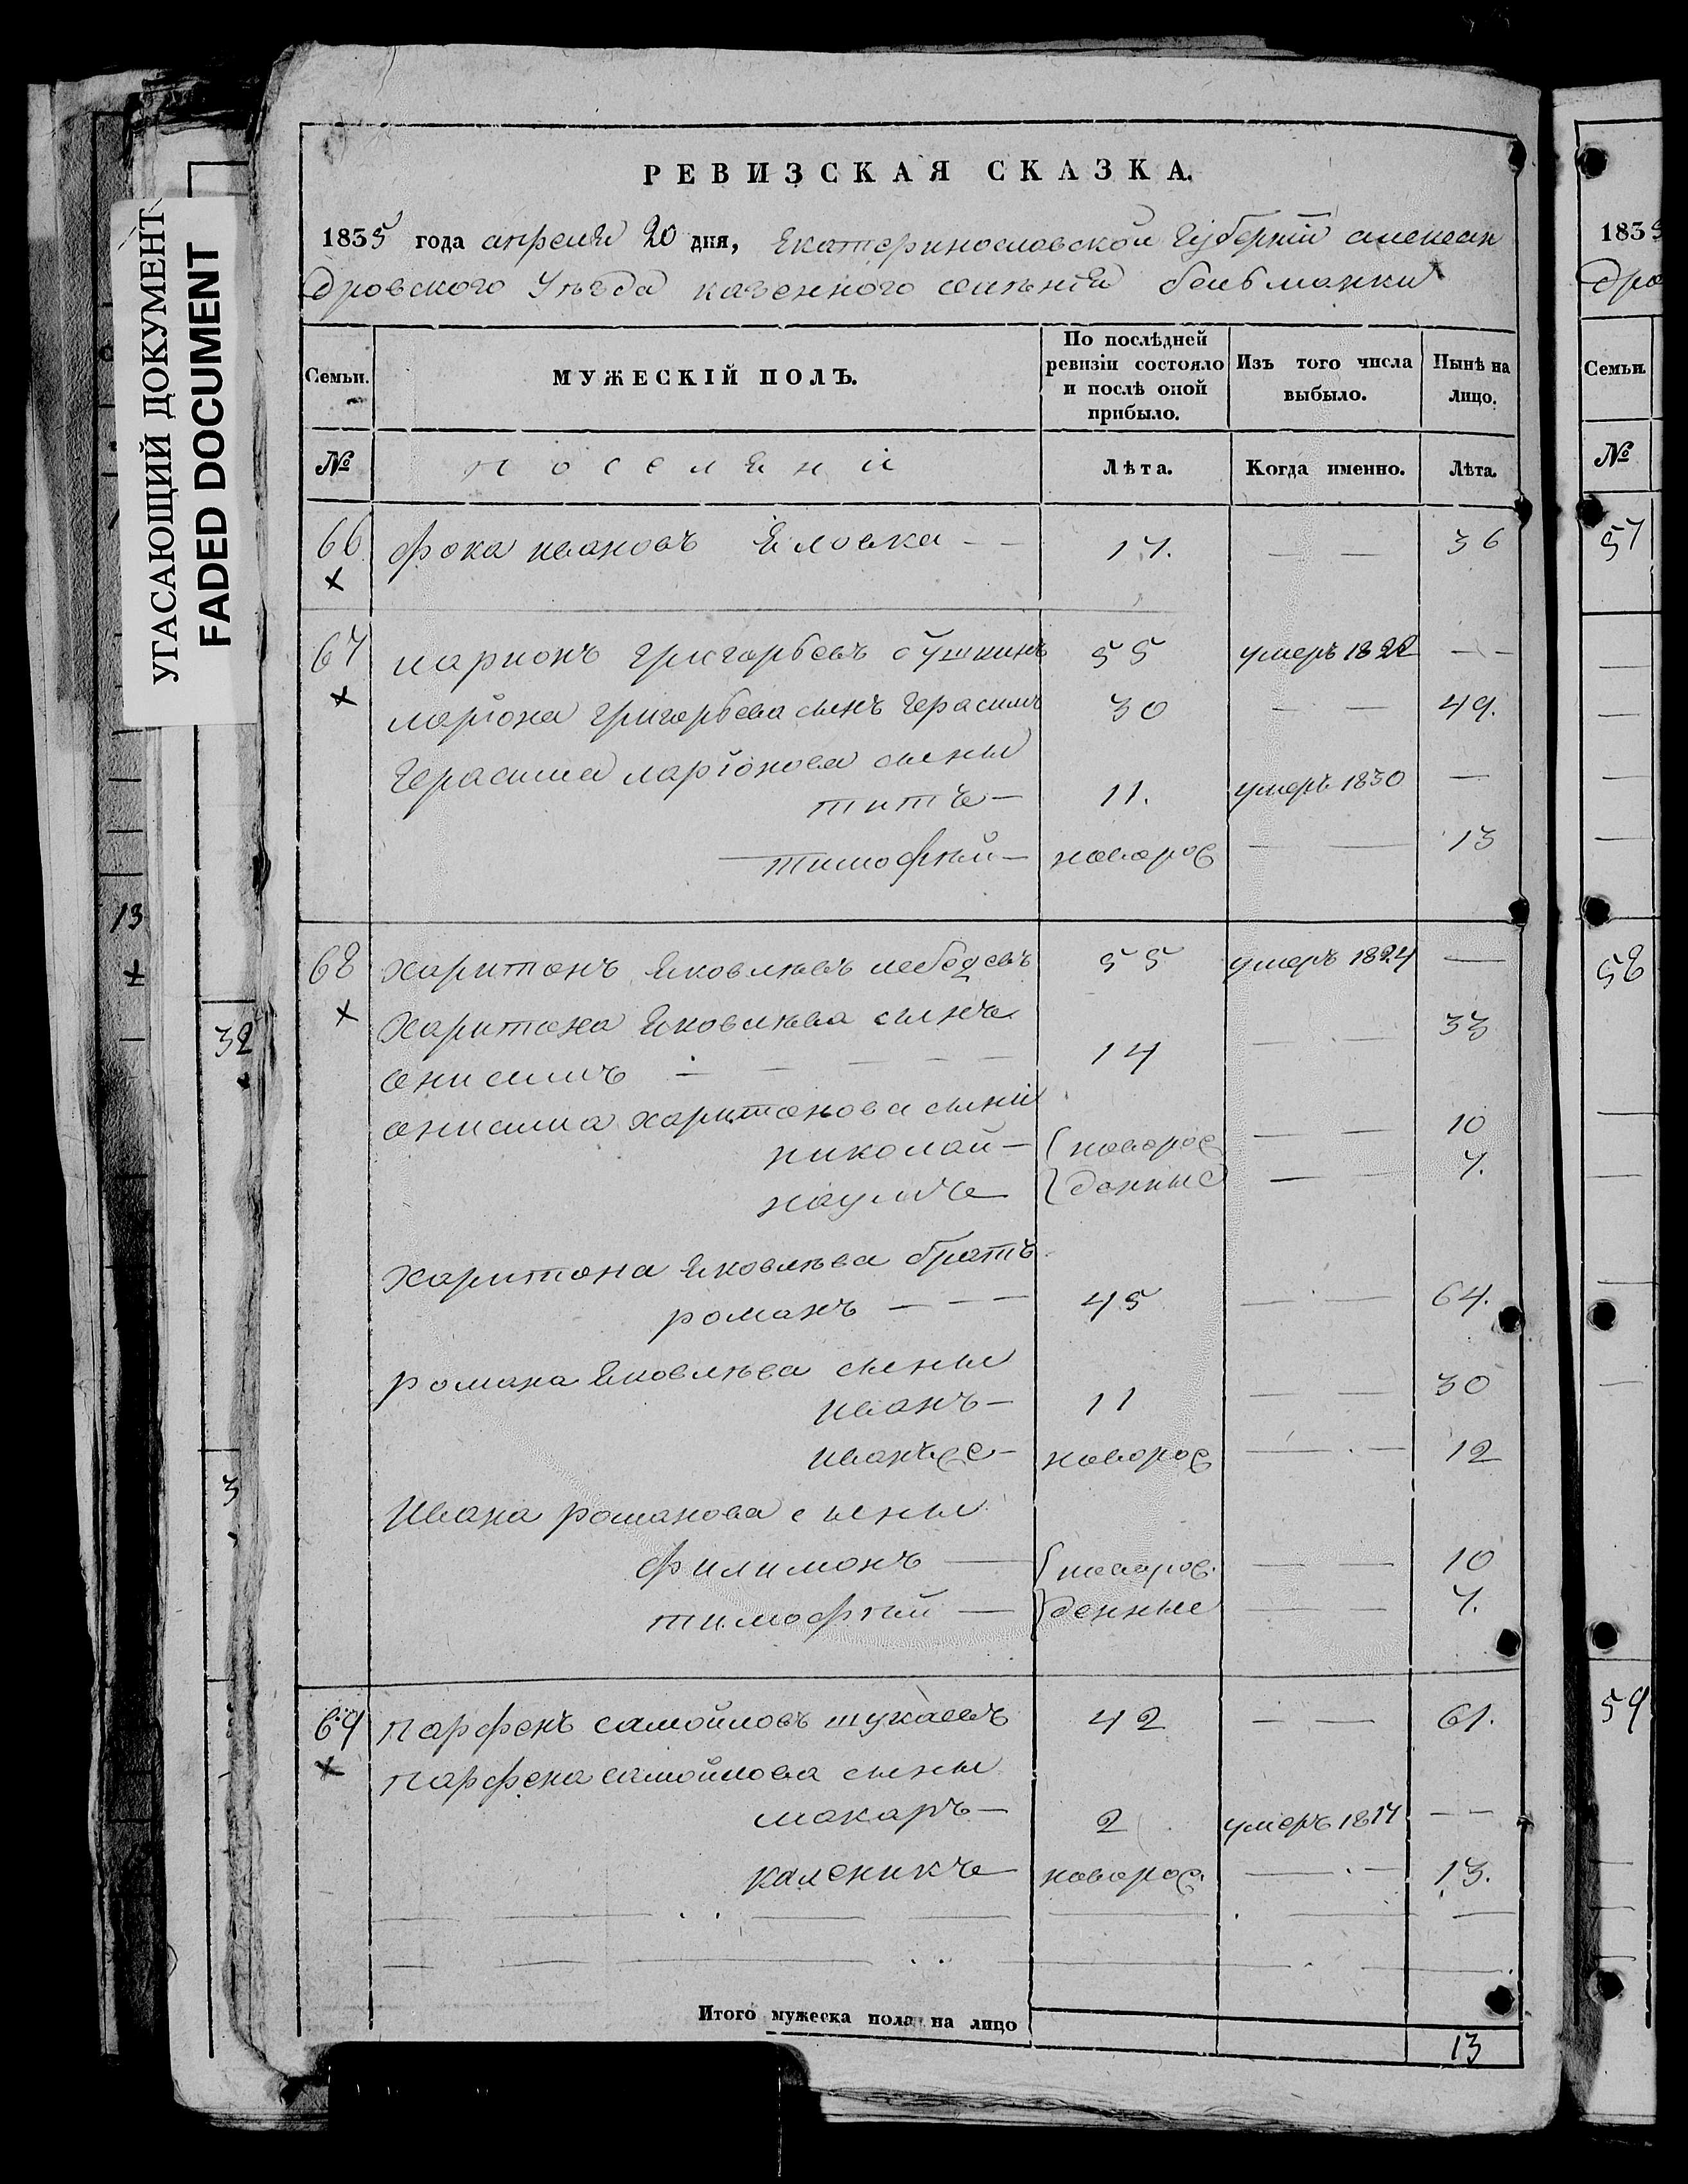 УГАСАЮЩИЙ ДОКУМЕНТ
FADED DOCUMENT
РЕВИЗСКАЯ СКАЗКА.
1835 года апреля 20 дня, Екатеринославской Губерніи алексан
дровского Уѣзда казенного селѣнія бельманки
Семьи.
МУЖЕСКІЙ ПОЛЪ.
По послѣдней ревизіи состояло и послѣ оной прибыло.
Изъ того числа выбыло.
Нынѣ на лицо.
№
поселяни
Лѣта.
Когда именно.
Лѣта.
66 фока ивановъ 17. — — 36
67 ларионъ григорьевъ сушкинъ 55 умеръ 1822 — —
ларіона григорьева сынъ герасимъ 30 — — 49.
герасима ларіонова сыны
титъ — 11. умеръ 1830 —
тимофѣй — наворож — — 13
68 харитонъ яковлѣвъ лебедевъ 55 умеръ 1824 —
харитона яковлѣва сынъ
анисимъ — — — — 14 — — 33
анисима харитонова сыни
николай — новорож — — 10
наумъ — денные — — 7.
харитона яковлѣва братъ
романъ — — — 45 — — 64.
романа яковлѣва сыны
иванъ — 11 — — 30
иванъже — наворож — — 12
Ивана романова сыны
филимонъ — наворож. — — 10
тимофѣй — денные — — 7.
69 парфенъ самойловъ шукаевъ 42 — — 61.
парфена самойлова сыны
макаръ — 2 умеръ 1817 — —
каленикъ — наворож. — — 13.
Итого мужеска пола на лицо 13
13
32
3
1835
дро
Семьи.
№
57
58
59